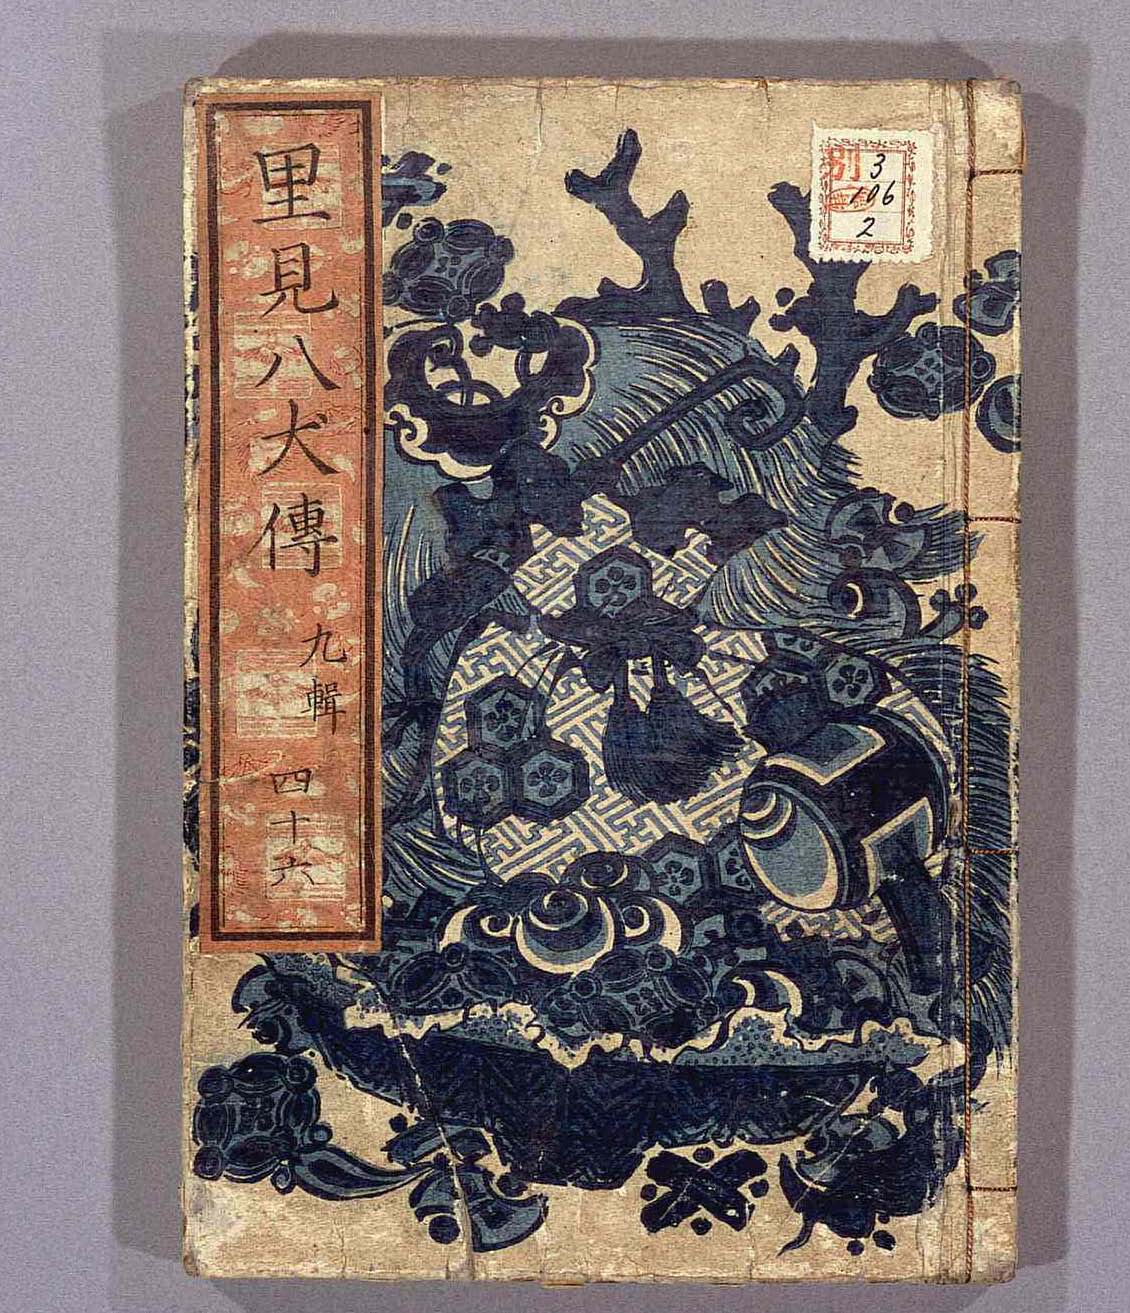 里見八犬傳
九輯
四十六
別 3
106
2